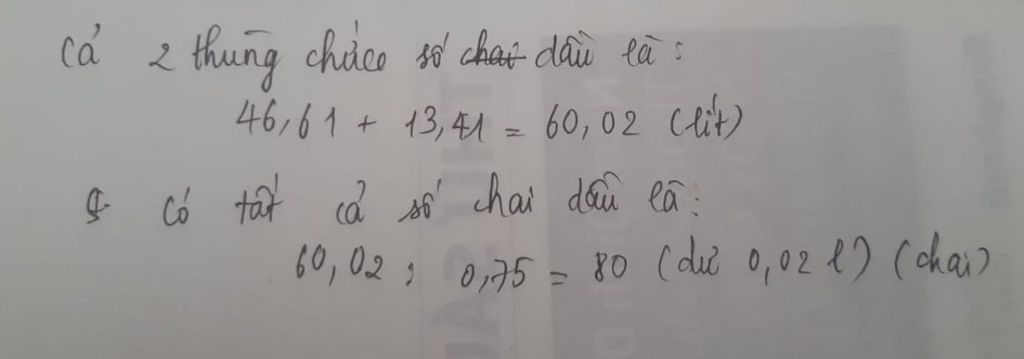 Cả 2 thùng chứa số chai dầu là:
46,61 + 13,41 = 60,02 (lít)
Có tất cả số chai dầu là:
60,02 : 0,75 = 80 (dư 0,02 l) (chai)